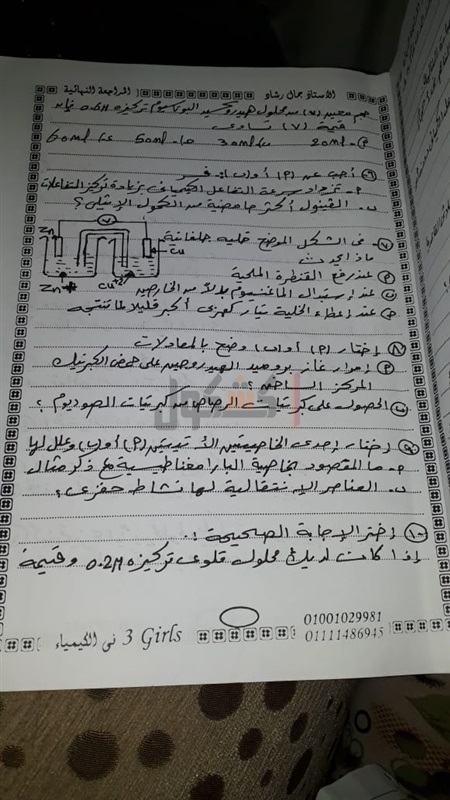 الأستاذ جمال رشاد
المراجعة النهائية
حجم معين (٧) من محلول هيدروكسيد البوتاسيوم تركيزه 0.6M
قيمة (٧) تساوى
20ml 30ml 50ml 60ml
٦- أجب عن (P) أو (ب) : فسر
P- تزداد سرعة التفاعل الكيميائى بزيادة تركيز المتفاعلات
ب. الفينول أكثر حامضية من الكحول الإيثيلى ؟
٧- فى الشكل الموضح خلية جلفانية
ماذا يحدث
V
Zn
Cu
Zn++
Cu+2
P عند رفع القنطرة الملحية
ب عند إستبدال الماغنسيوم بدلاً من الخارصين
عند إعطاء الخلية تيار كهربى أكبر قليلاً مما تنتجه
٨- إختار (P) أو (ب) وضح بالمعادلات
P إمرار غاز بروميد الهيدروجين على حمض الكبريتيك
المركز الساخن ؟
ب الحصول على كبريتات الرصاص من كبريتات الصوديوم ؟
كشكول
٩- إختار إحدى الخاصيتين الأتيتين (P) أو (ب) وعلل لها
P- ما المقصود بخاصية البارامغناطيسية مع ذكر مثال
ب. العناصر الإنتقالية لها نشاط حفزى ؟
١٠- إختر الإجابة الصحيحة :
إذا كانت لديك محلول قلوى تركيزه 0.2M وقيمة
3 Girls فى الكيمياء
01001029981
01111486945